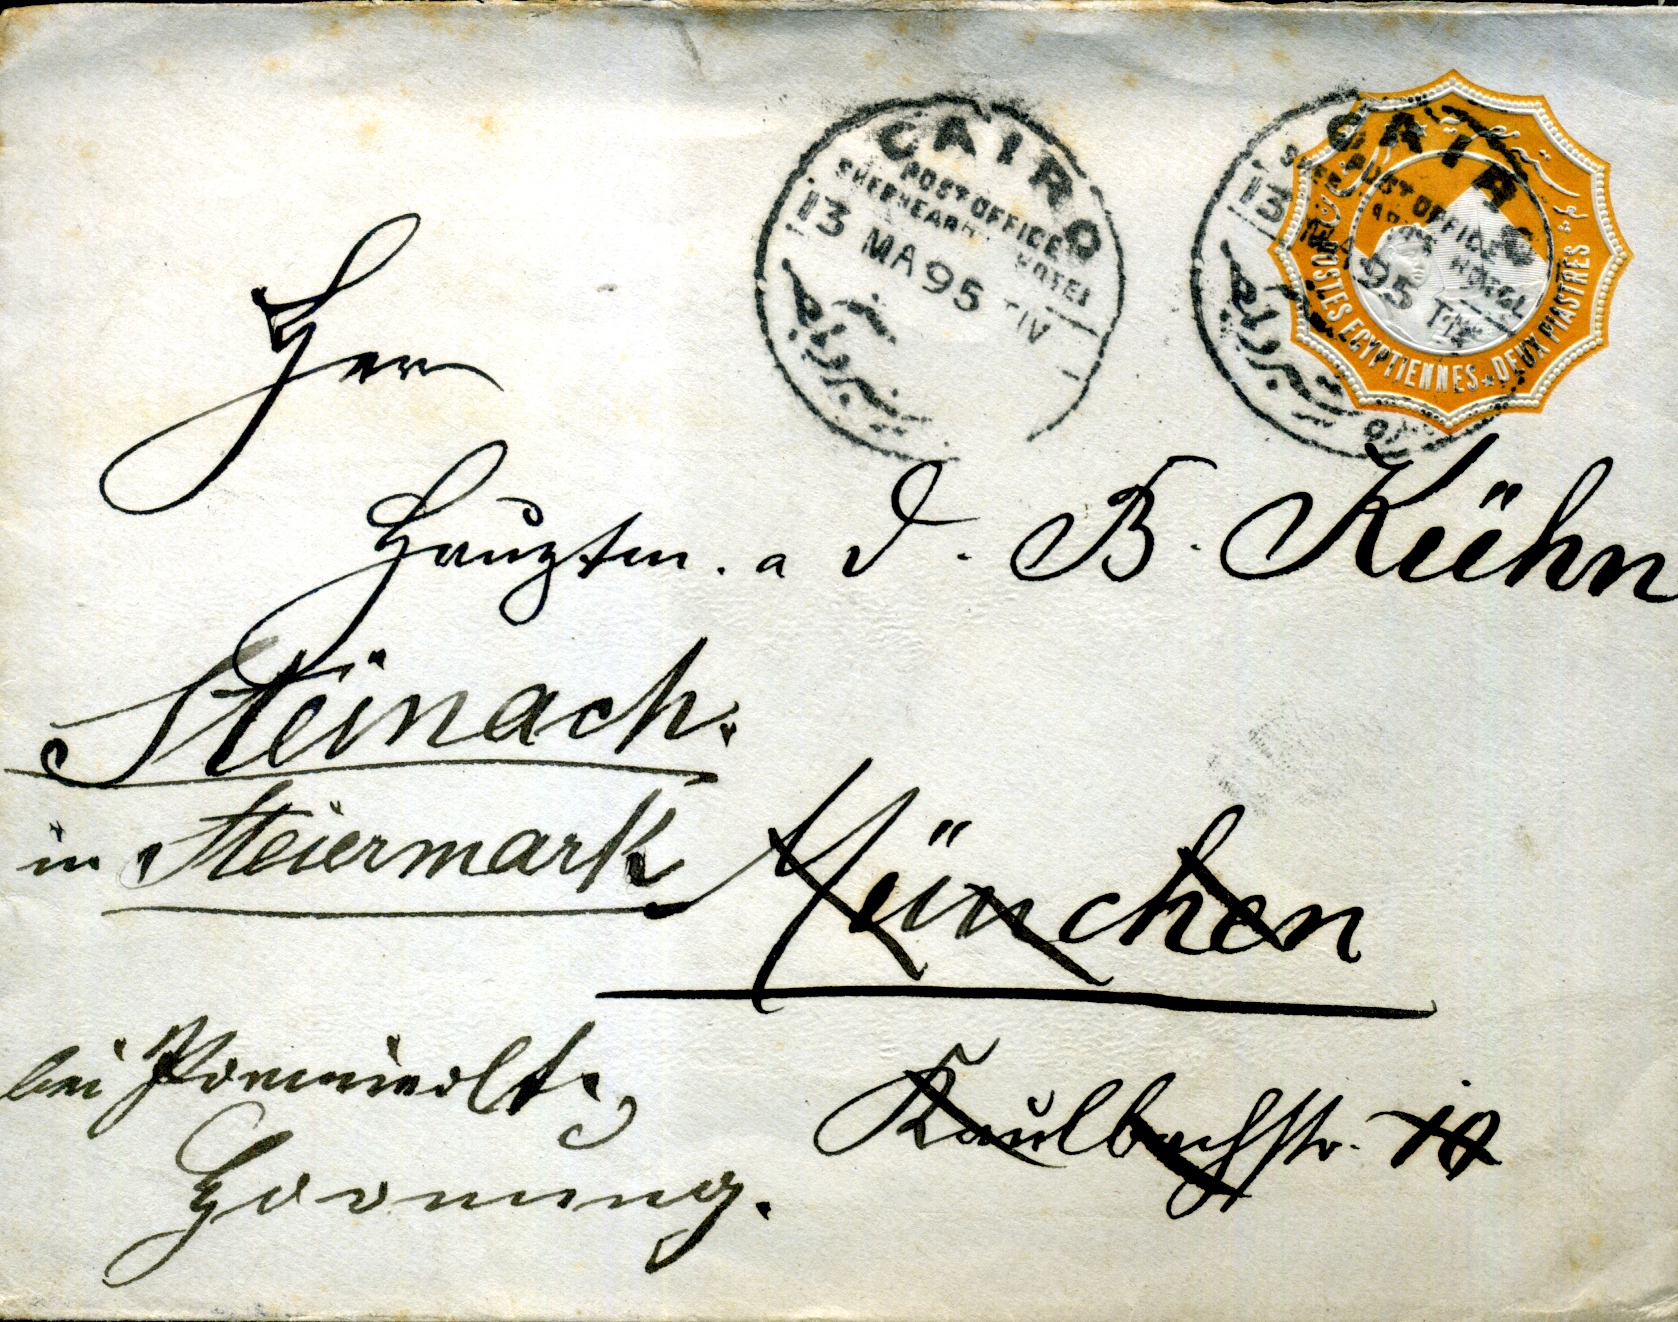 CAIRO
POST OFFICE
SHEPHEARD'S HOTEL
13 MA 95 T IV
CAIRO
POST OFFICE
SHEPHEARD'S HOTEL
13 MA 95 T IV
POSTES EGYPTIENNES * DEUX PIASTRES
Herr
Hauptm. a D. B. Kühn
Steinach.
in Steiermark
München
bei
Kaulbachstr.
Hornung.